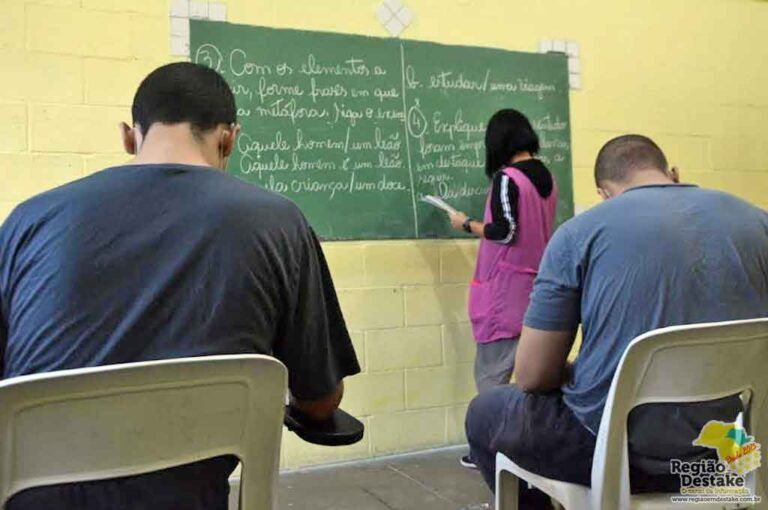 ③. Com os elementos a
ar, forme frases em que
a metáfora. Siga o exem
Aquele homem/um leão
Aquele homem é um leão.
la criança/um doce.
b. estudar/uma viagem.
④. Explique
foram em
em destaque a
seguir.
Região
Destake
www.regiaoemdestake.com.br